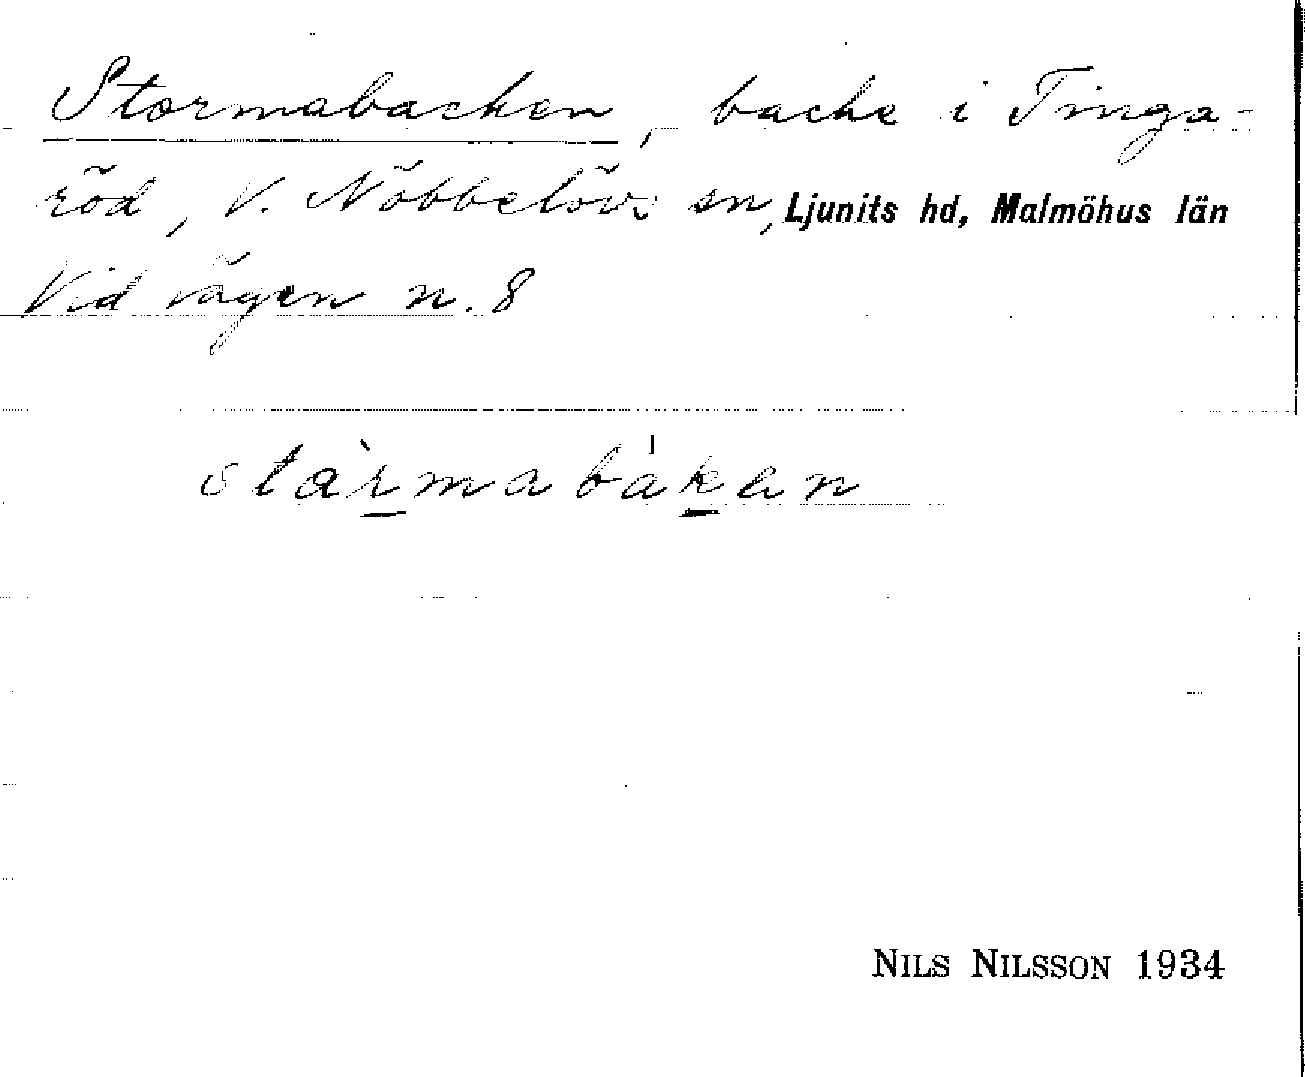 Stormabacken, backe i Tinga-
röd, V. Nöbbelövs sn, Ljunits hd, Malmöhus län
Vid vägen n. 8
stàrmabákan
NILS NILSSON 1934